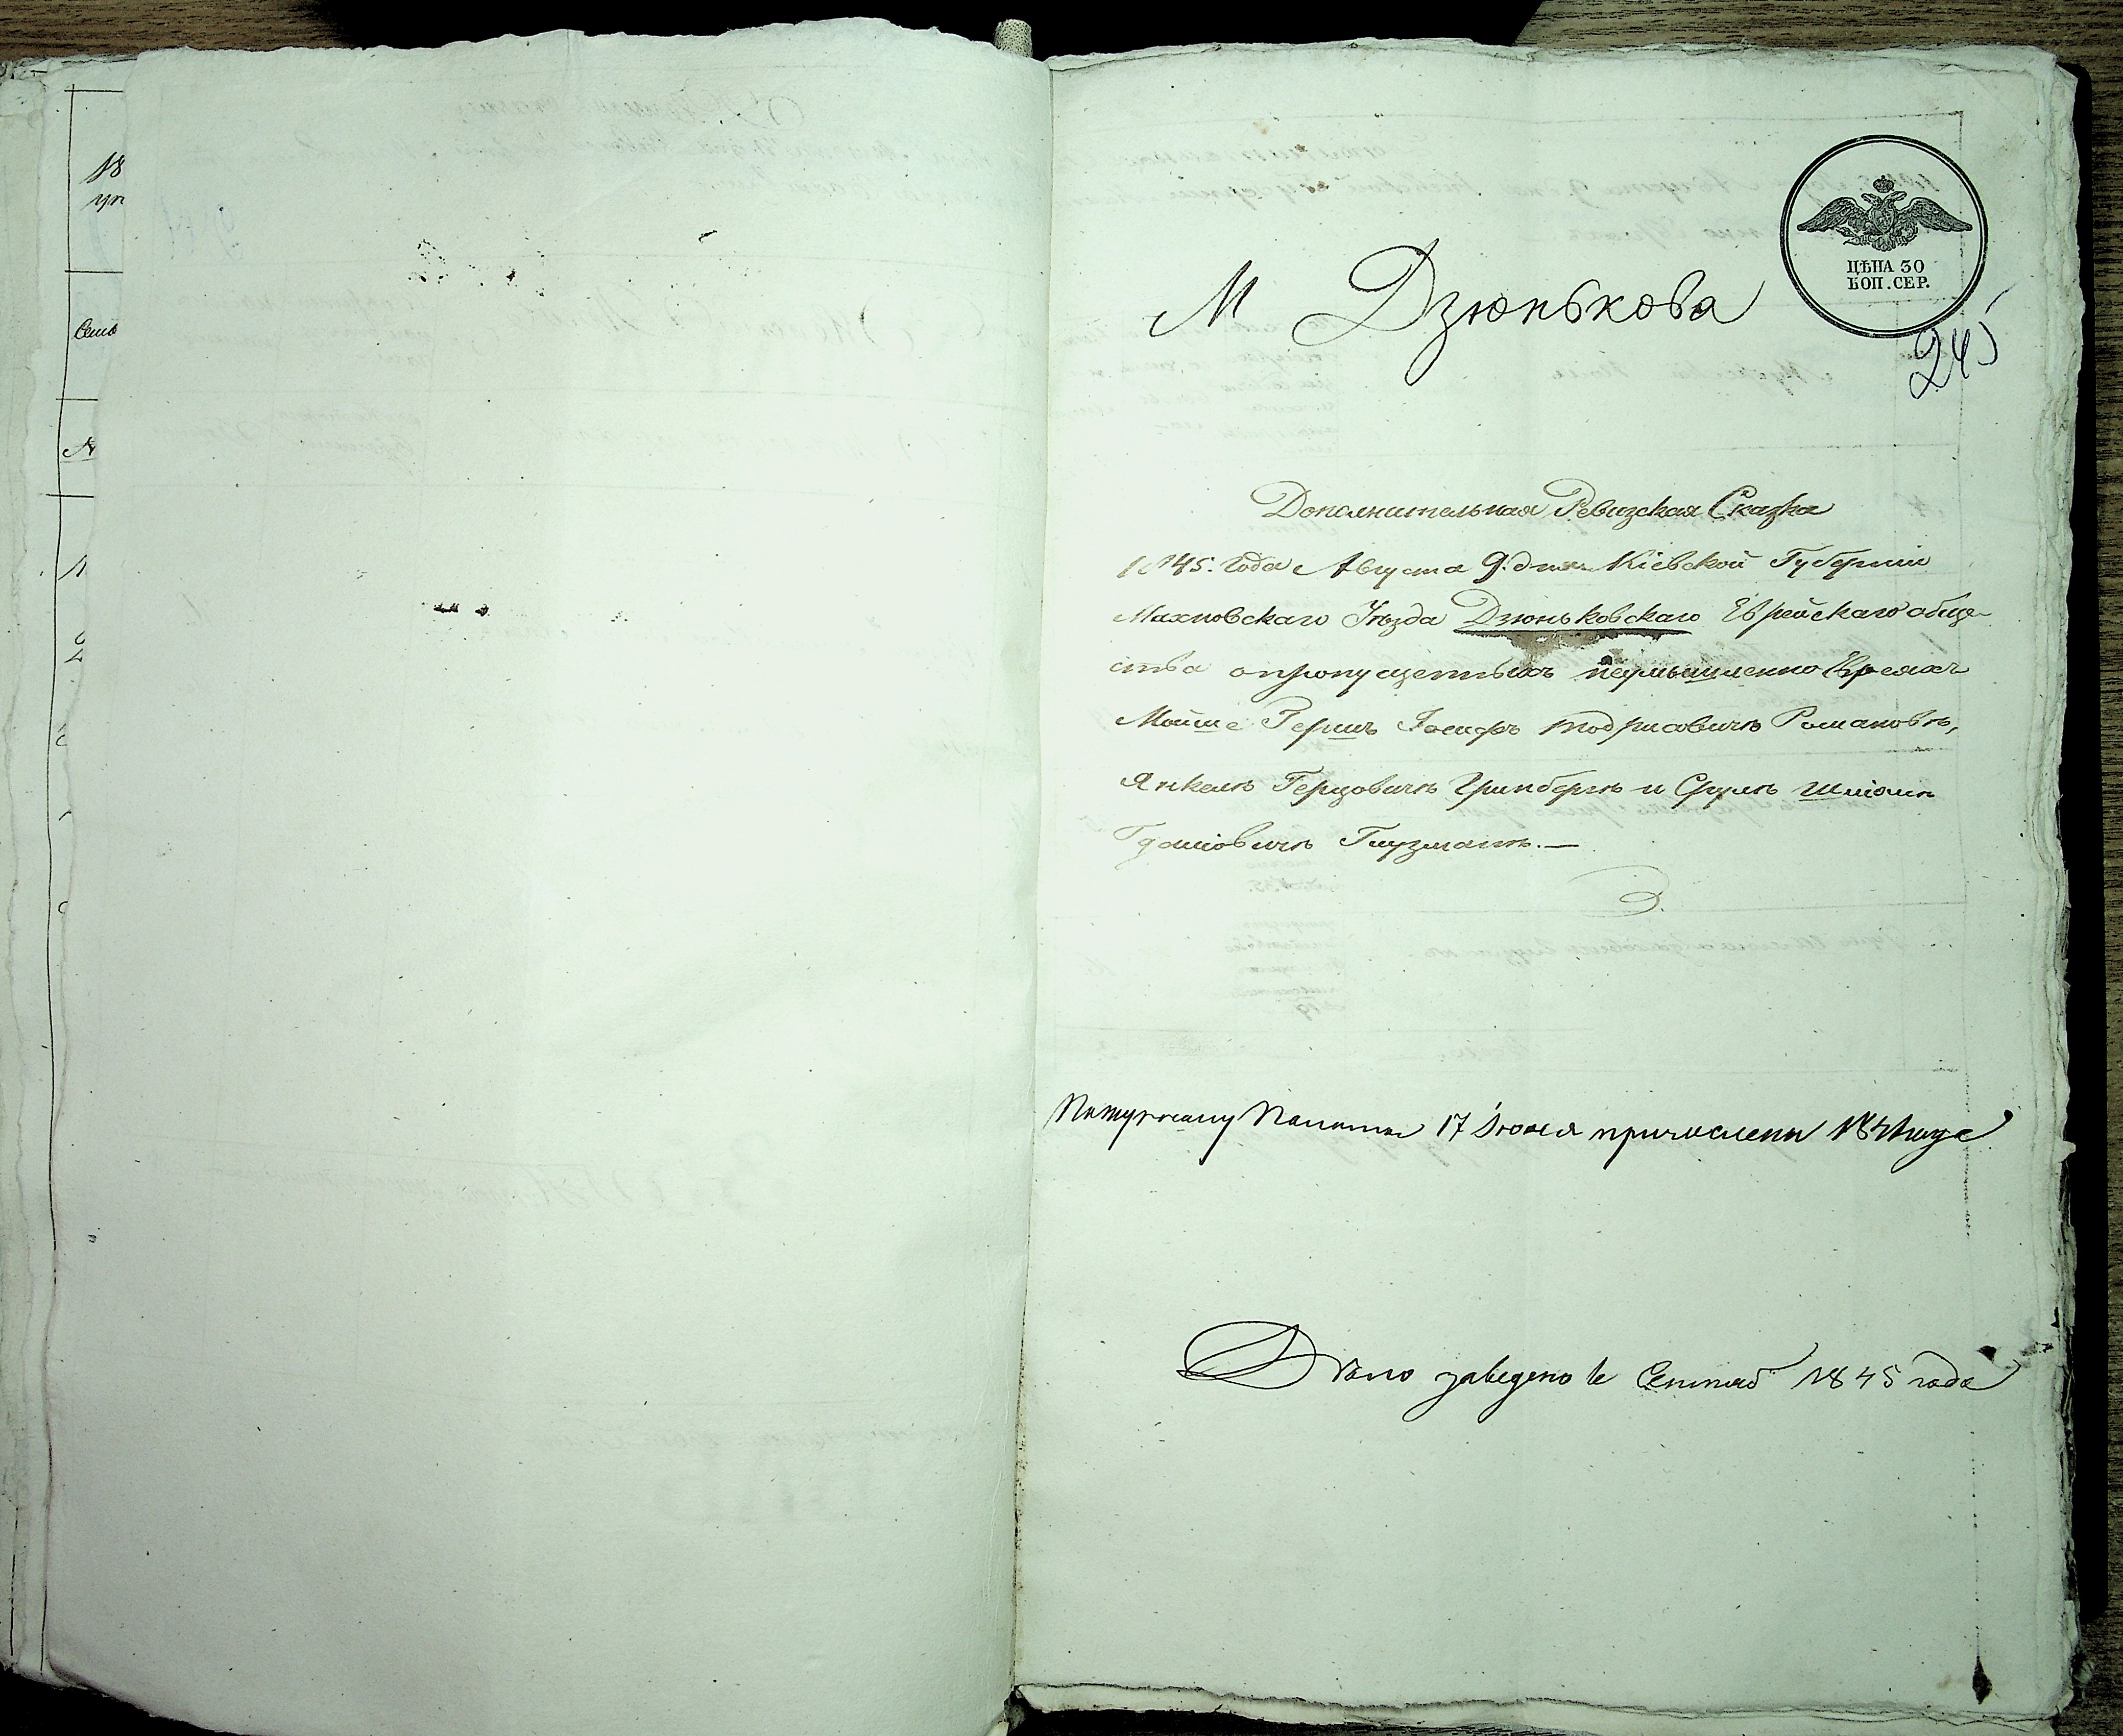 18
ЦѢНА 30
КОП. СЕР.
М Дзюнькова
245
Дополнительная Ревизская Сказка
1845. Года Августа 9. дня Кіевской Губерніи
Махновскаго Уѣзда Дзюньковскаго Еврейскаго обще-
ства о пропущенныхъ Евреяхъ
Мошие Гершъ Іосифъ Тодрисовичъ Романовъ,
Янкель Герцовичъ Гринбергъ и Сруль Шліома
Глузманъ. —
17 Іюня причислены
Дѣло заведено в Сентяб 1845 года